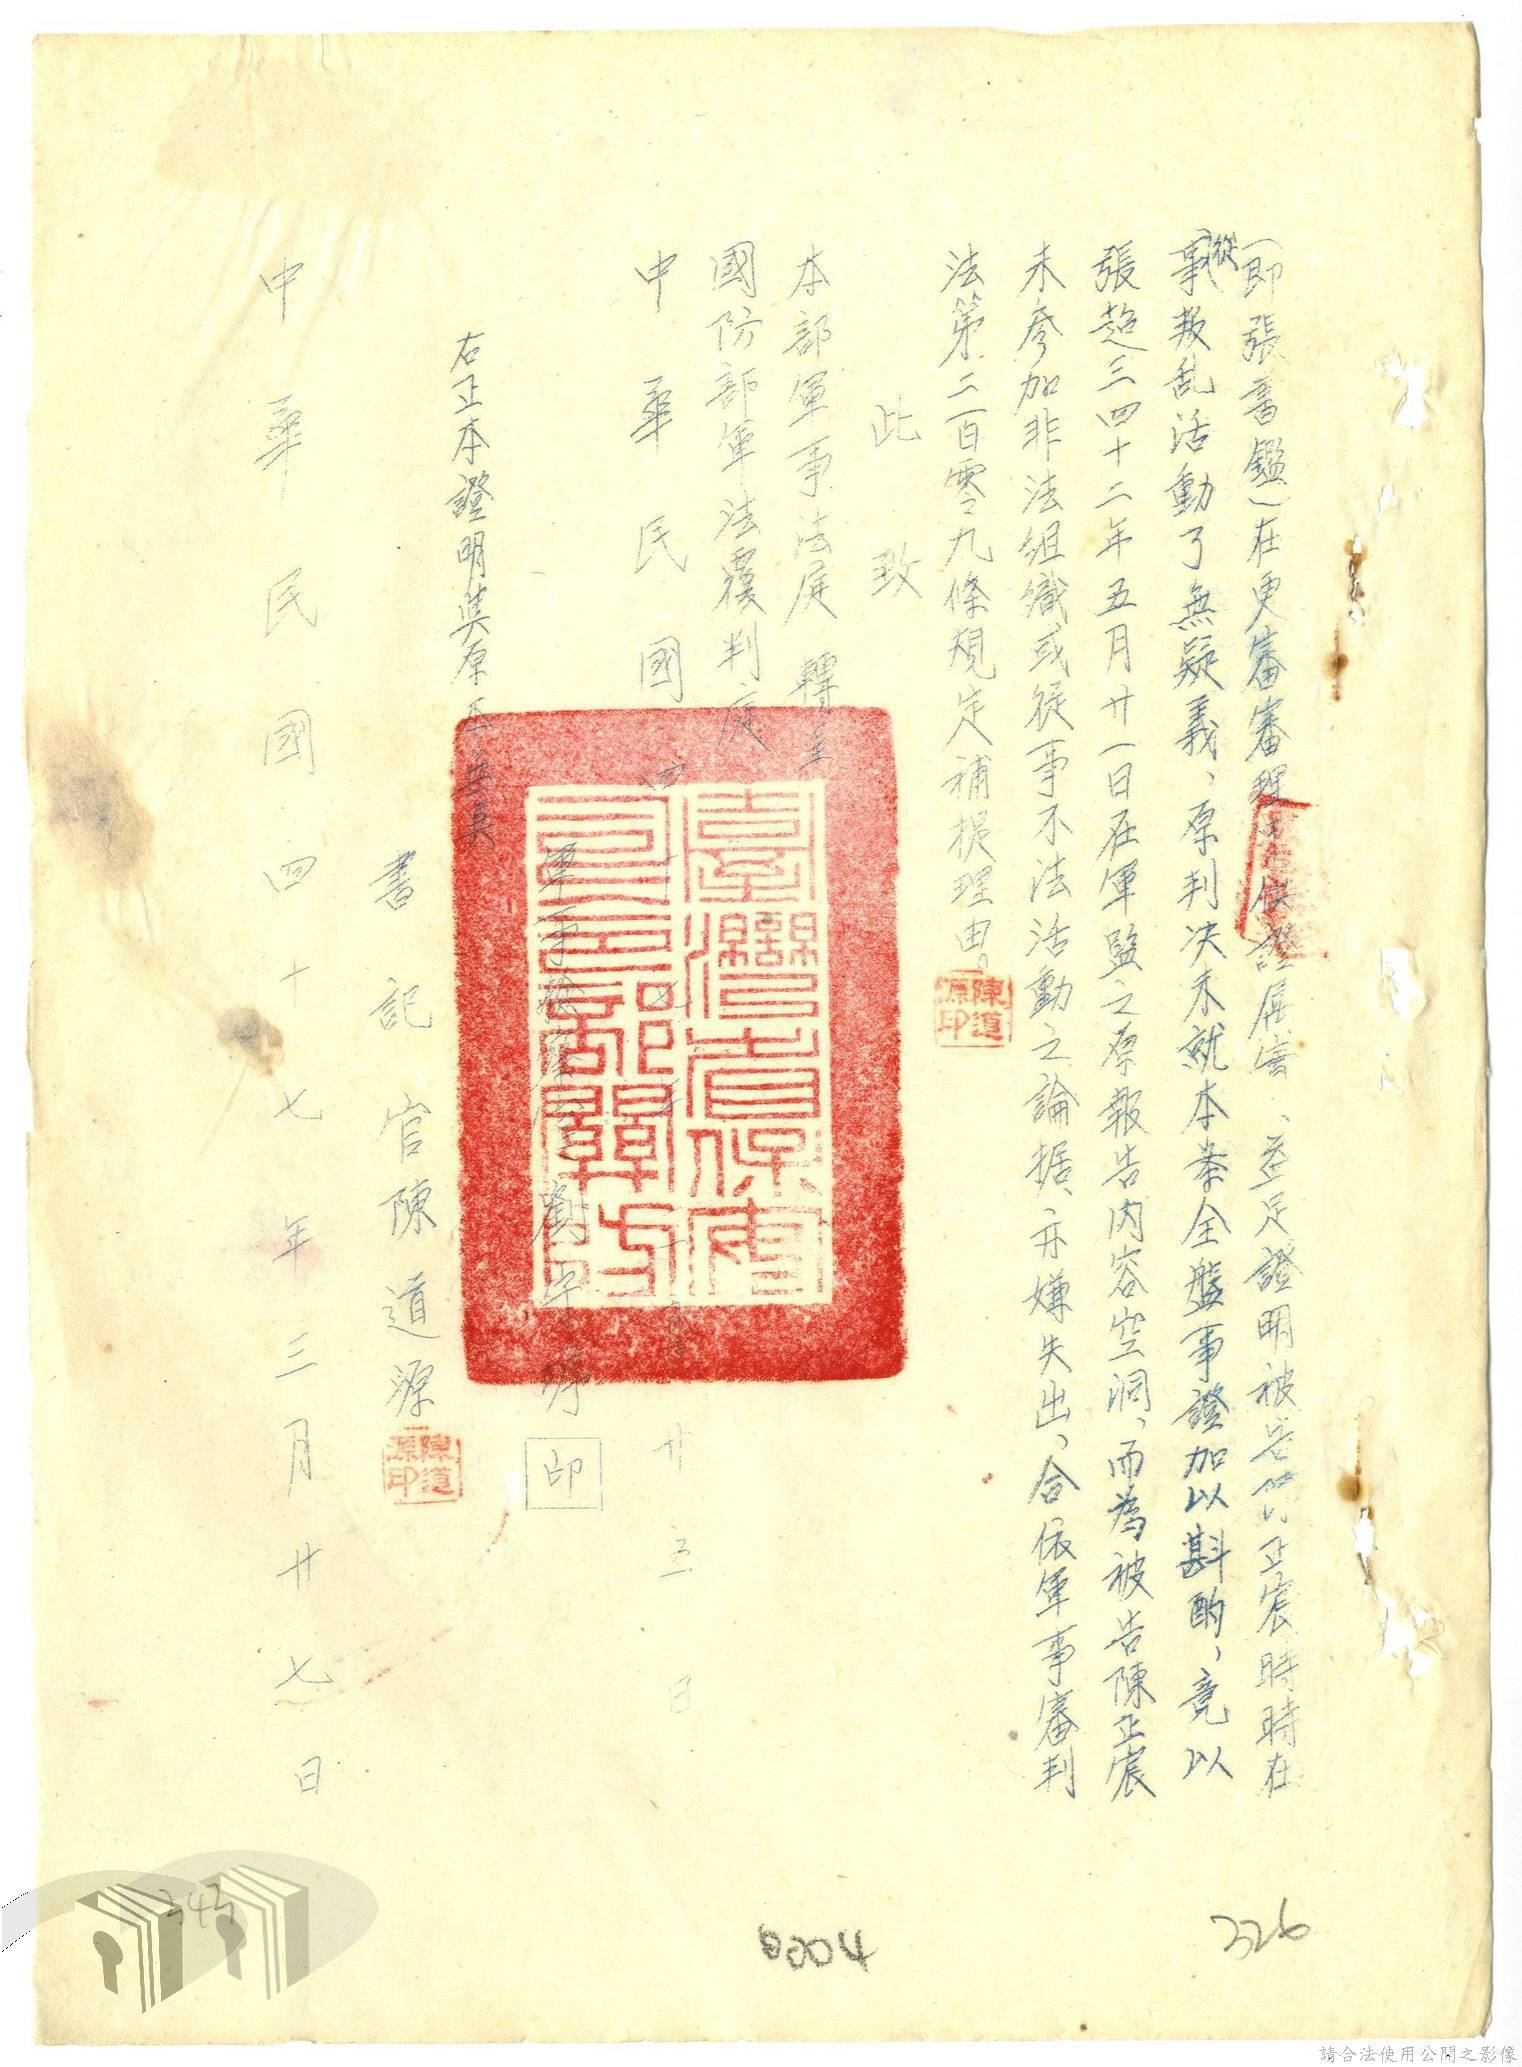 (即張書鑑)在更審審理中供證屬實、益足證明被告陳正宸時時在
從
事叛乱活動了無疑義、原判决未就本案全盤事證加以斟酌、竟以
張超三四十二年五月廿一日在軍監之原報告内容空洞、而為被告陳正宸
未參加非法組織或從事不法活動之論据、亦嫌失出、合依軍事審判
法第二百零九條規定補提理由。
陳道源印
此致
本部軍事法庭 轉呈
國防部軍法覆判庭
中華民國四十七年三月廿五日
軍事檢察官劉 印
臺灣省保安司令部關防
右正本證明與原本無異
書記官陳道源
陳道源印
中華民國四十七年三月廿七日
343
0004
326
請合法使用公開之影像